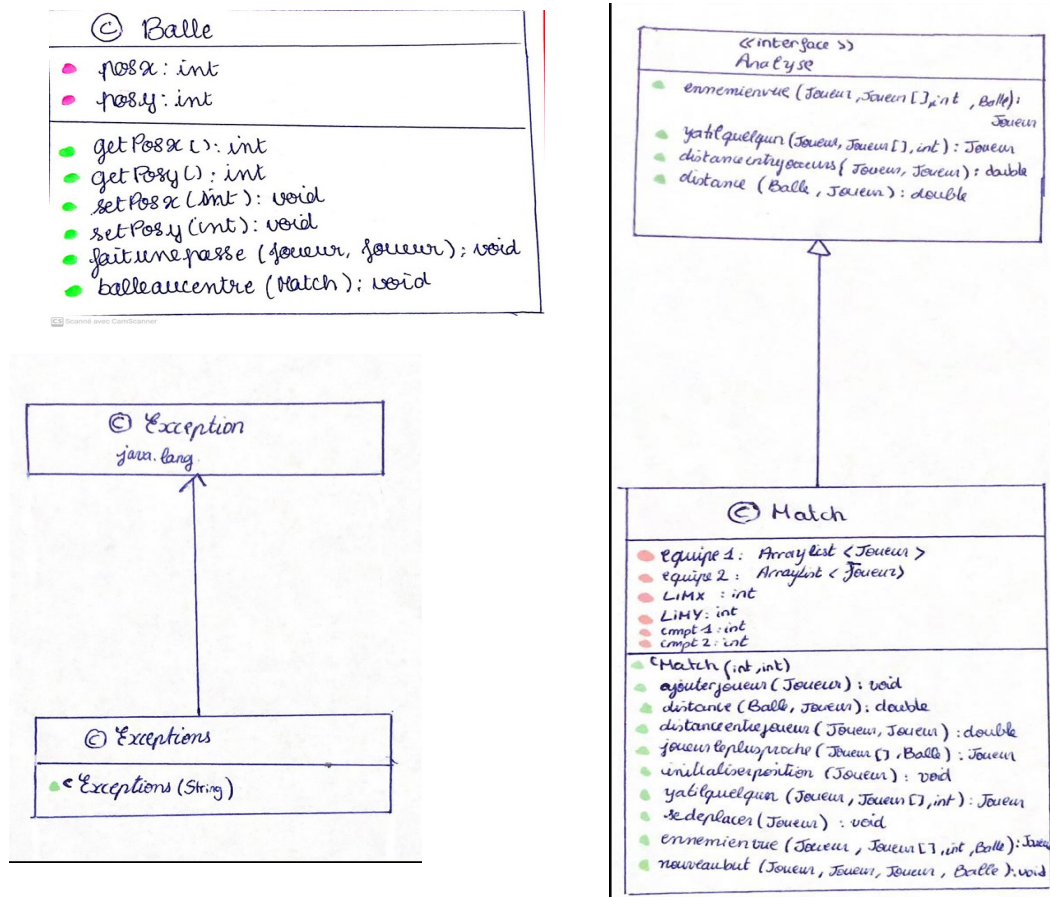 © Balle
posx: int
posy: int
getPosx(): int
getPosy(): int
setPosx(int): void
setPosy(int): void
faitunepasse (Joueur, Joueur): void
balleaucentre (Match): void
CS Scanné avec CamScanner
© Exception
java.lang.
© Exceptions
c Exceptions (String)
<<interface>>
Analyse
ennemienvue (Joueur, Joueur [], int , Balle):
Joueur
yatilquelqun (Joueur, Joueur [], int) : Joueur
( Joueur, Joueur) : double
distance (Balle , Joueur) : double
© Match
equipe 1: Arraylist <Joueur>
equipe 2 : Arraylist < Joueur>
LiMX : int
LiMY: int
cmpt 1 : int
cmpt 2 : int
c Match (int ,int)
ajouterjoueur (Joueur) : void
distance (Balle, Joueur): double
distanceentrejoueur ( Joueur, Joueur) : double
joueurleplusproche (Joueur [] , Balle) : Joueur
initialiserposition (Joueur) : void
yatilquelqun (Joueur , Joueur [], int) : Joueur
sedeplacer (Joueur) : void
ennemienvue (Joueur , Joueur [] , int , Balle) : Joueu
nouveaubut (Joueur, Joueur, Joueur , Balle ): void